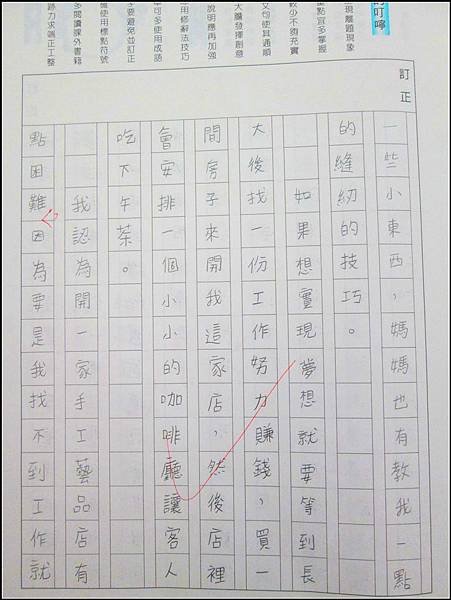 叮嚀
現離題現象
點宜多掌握
不夠充實
文句使其通順
大膽發揮創意
說明應再加強
用修辭法技巧
可多使用成語
要避免並訂正
確使用標點符號
多閱讀課外書籍
跡力求端正工整
訂正
一些小東西，媽媽也有教我一點
的縫紉的技巧。
如果想實現夢想就要等到長
大後找一份工作努力賺錢，買一
間房子來開我這家店，然後店裡
會安排一個小小的咖啡廳讓客人
吃下午茶。
我認為開一家手工藝品店有
點困難因為要是我找不到工作就